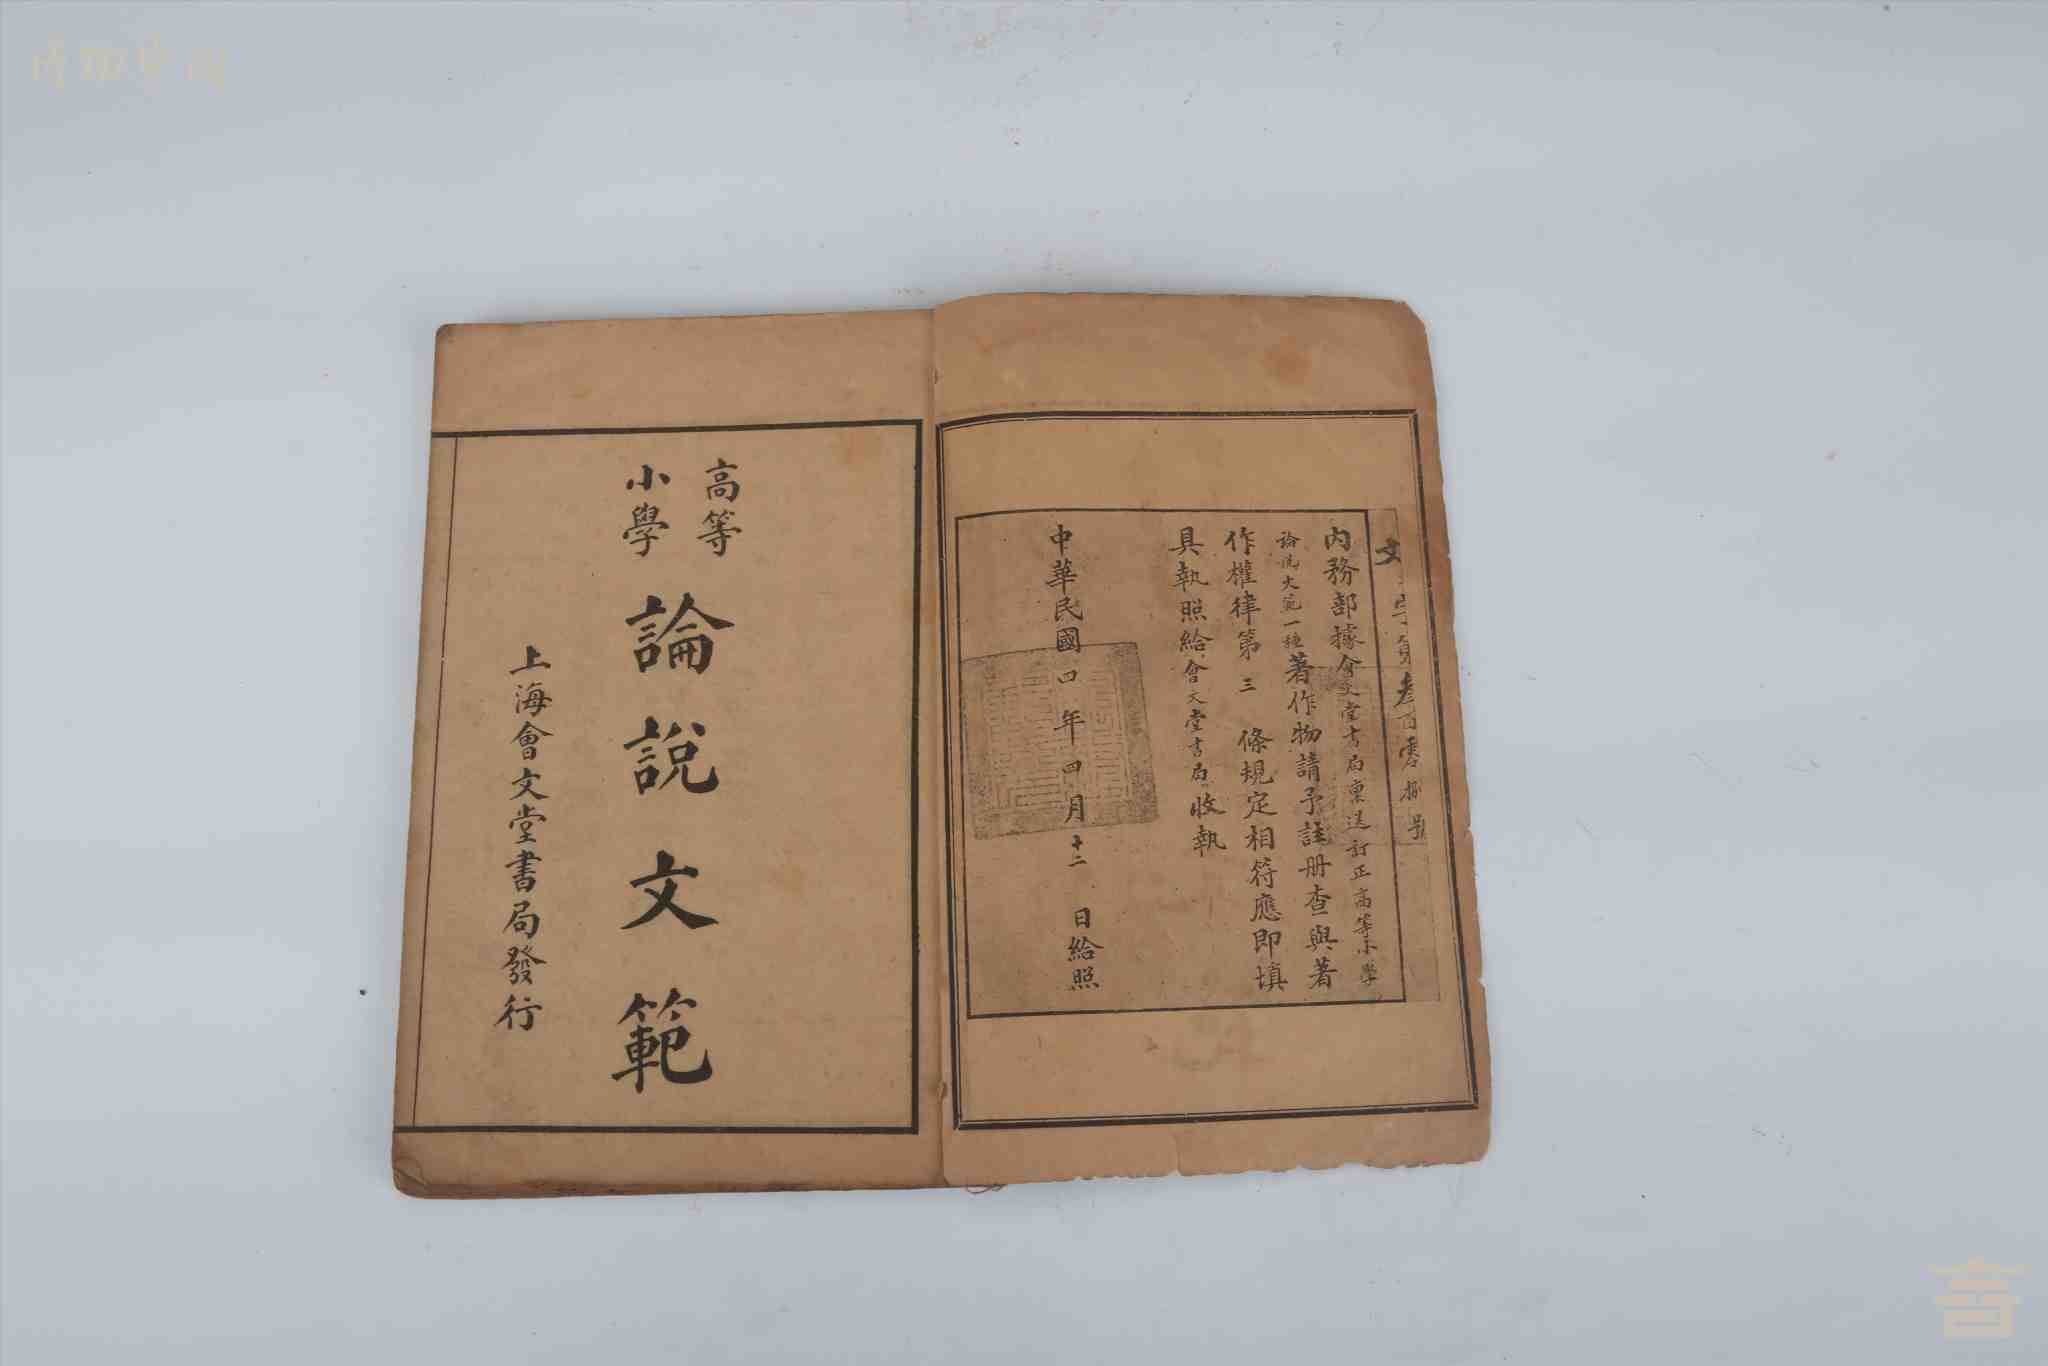 內務部據會文堂書局稟送訂正高等小學
論說文範一種著作物請予註冊查與著
作權律第三條規定相符應即填
具執照給會文堂書局收執
中華民國四年四月十二日給照
高等
小學
論說文範
上海會文堂書局發行